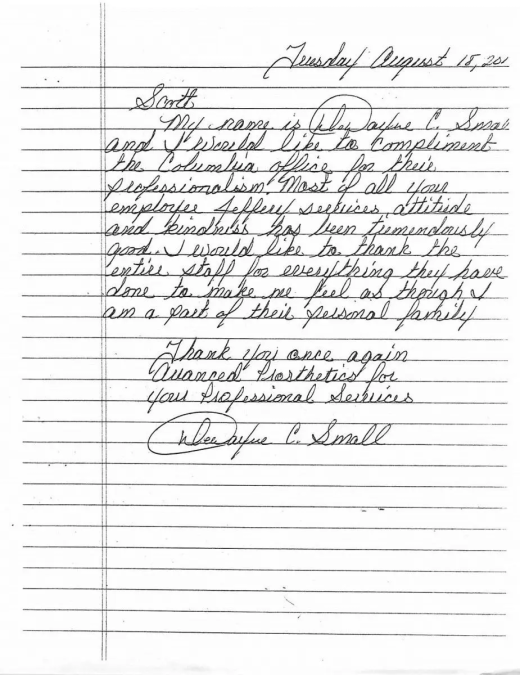 Tuesday August 15, 201
Scott,
My name is DeeWayne C. Small
and I would like to compliment
the Columbia office for their
professionalism. Most of all your
employee Jeffery services attitide
and kindness has been tremendously
good. I would like to thank the
entire staff for everything they have
done to make me feel as though I
am a part of their personal family
Thank you once again
Avanced Prosthetics for
your Professional Services
DeeWayne C. Small